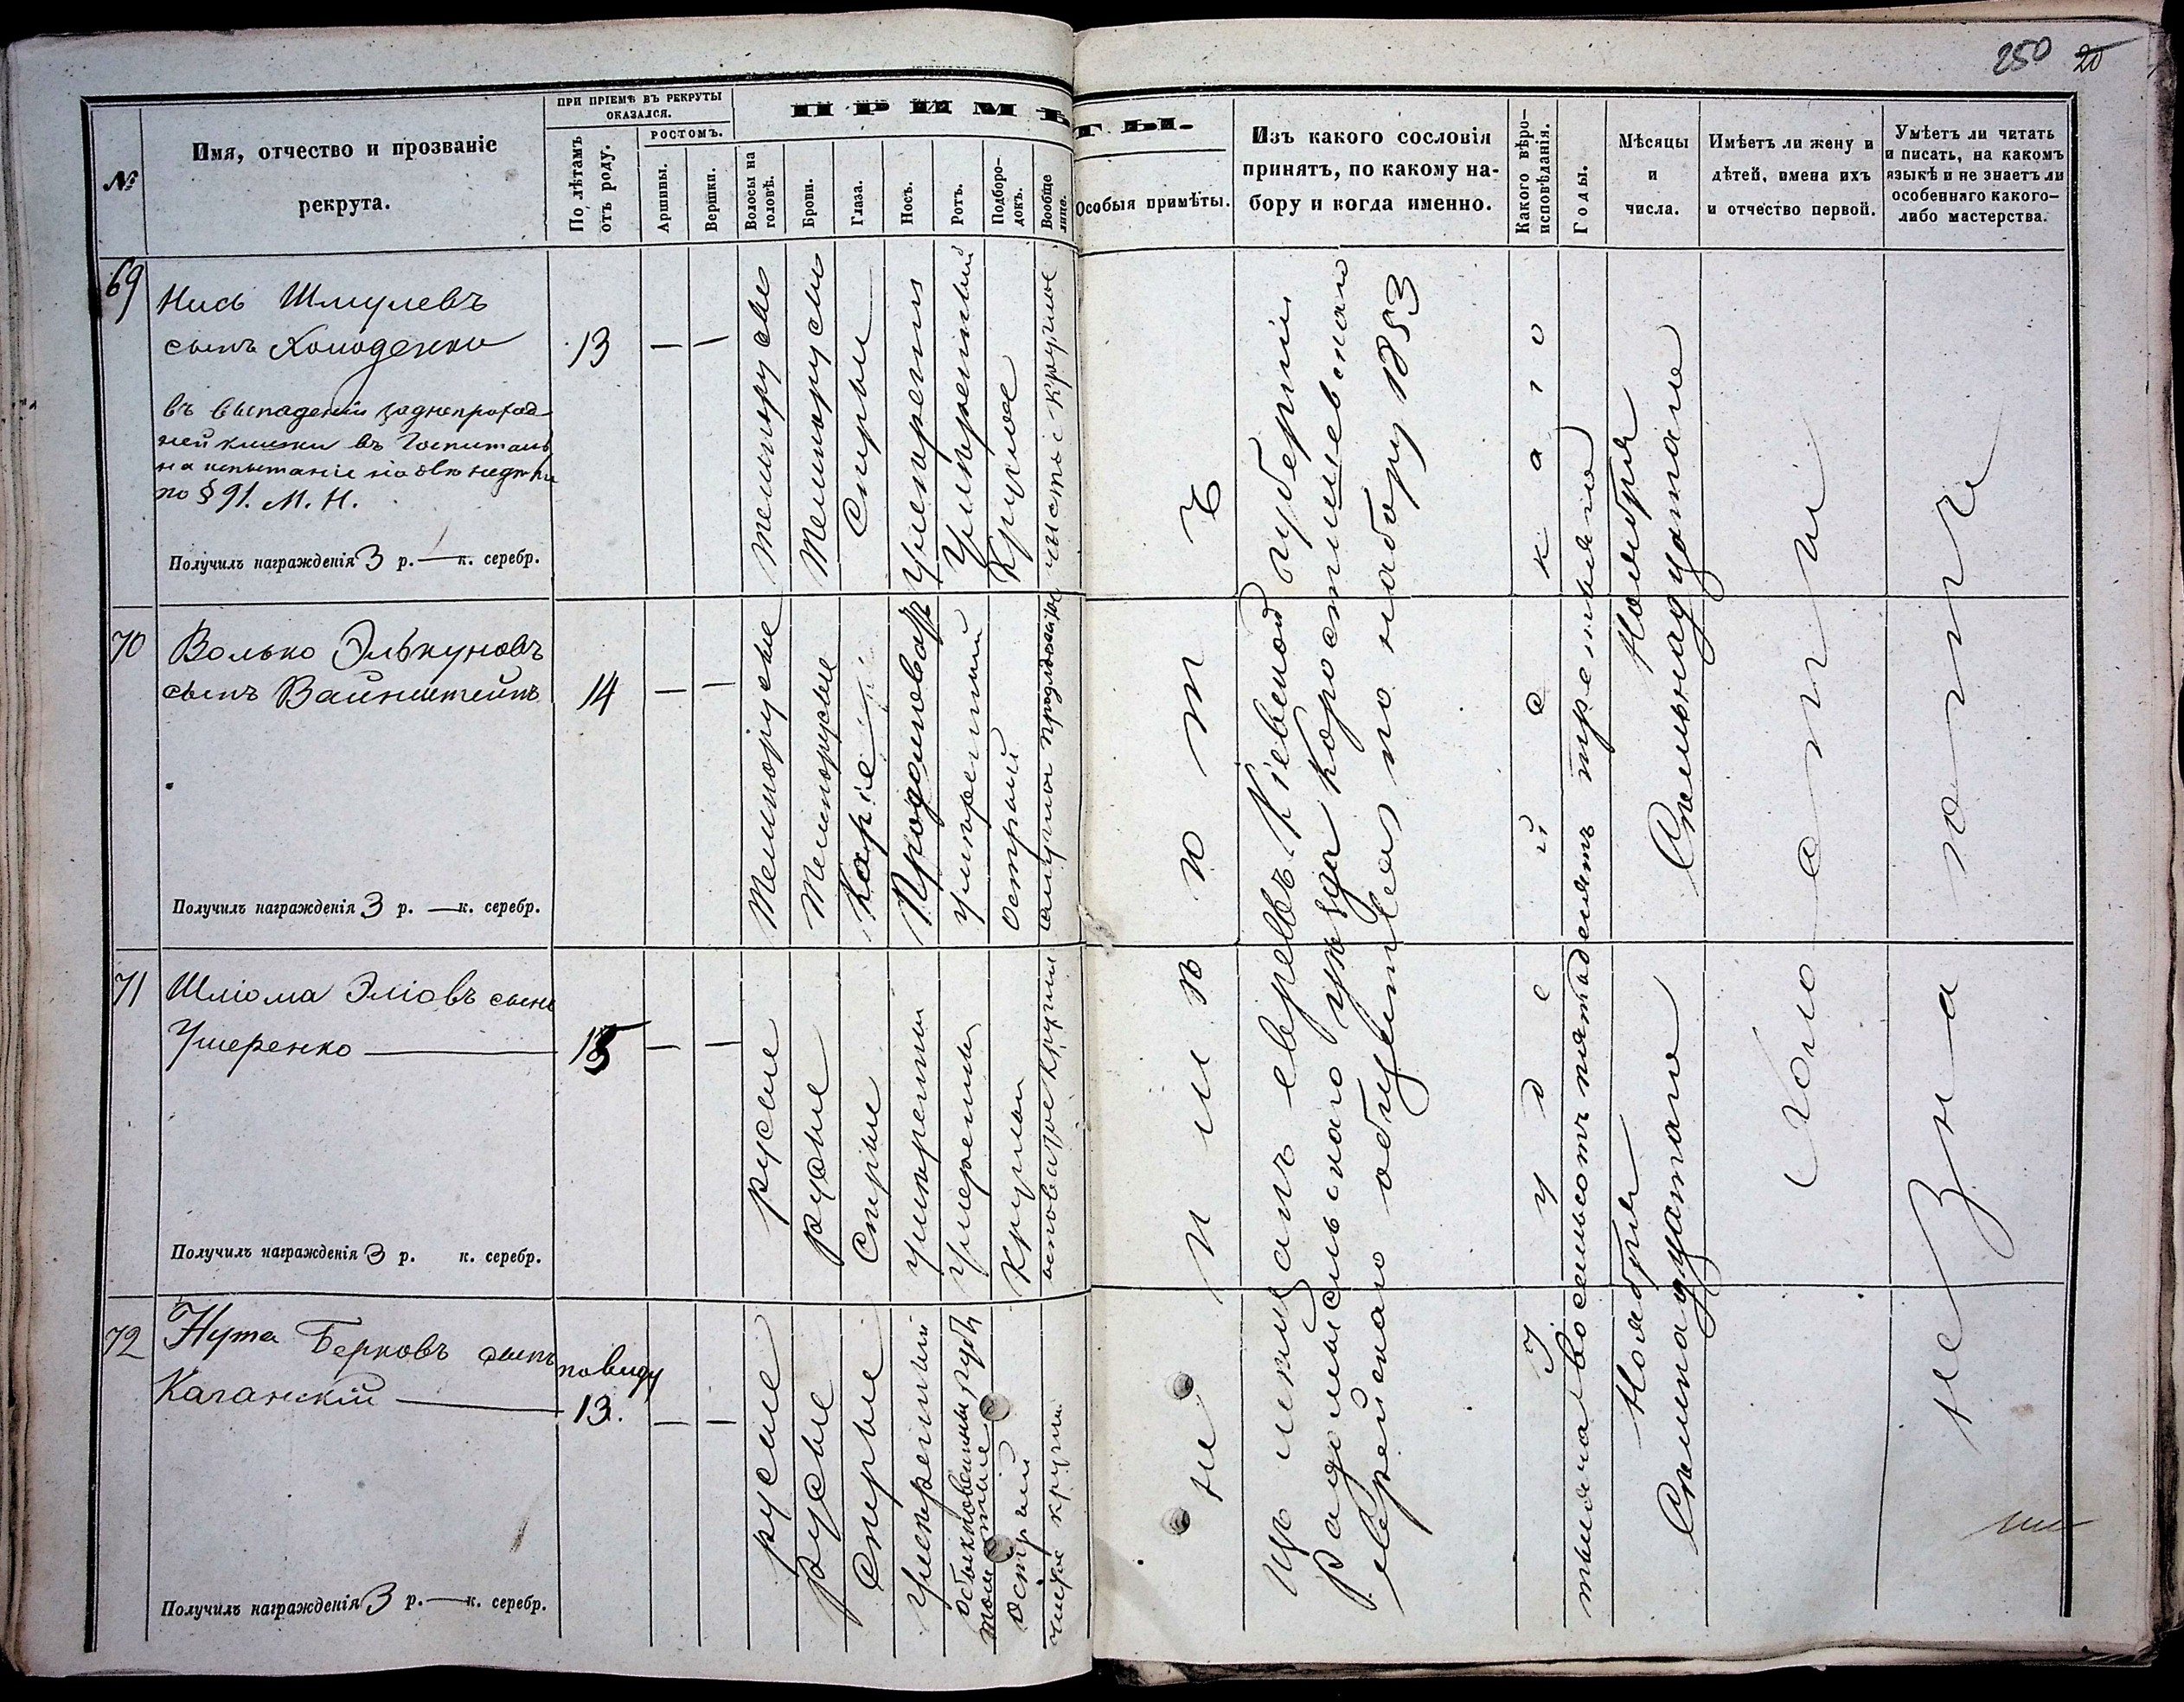 250 20
№
Имя, отчество и прозваніе
рекрута.
ПРИ ПРІЕМѢ ВЪ РЕКРУТЫ
ОКАЗАЛСЯ.
По лѣтамъ
отъ роду.
РОСТОМЪ.
Аршины.
Вершки.
ПРИМѢТЫ.
Волосы на
головѣ.
Брови.
Глаза.
Носъ.
Ротъ.
Подборо-
докъ.
Вообще
лице.
Особыя примѣты.
Изъ какого сословія
принятъ, по какому на-
бору и когда именно.
Какого вѣро-
исповѣданія.
Годы.
Мѣсяцы
и
числа.
Имѣетъ ли жену и
дѣтей, имена ихъ
и отчество первой.
Умѣетъ ли читать
и писать, на какомъ
языкѣ и не знаетъ ли
особеннаго какого-
либо мастерства.
69
Нись Шмулевъ
сынъ Холоденко
въ выпаденіи заднепроход
ной кишки въ Госпиталь
на испытаніе на двѣ недѣли
по § 91. М. Н.
Получилъ награжденія 3 р. — к. серебр.
13
—
—
темнорусые
темнорусые
Сѣрые
Умѣренный
Умѣренный
Круглое
чистое круглое
70
Волько Элькуновъ
сынъ Вайнштейнъ
Получилъ награжденія 3 р. — к. серебр.
14
—
—
темнорусые
темнорусые
Каріе
Продолговат
умѣренный
острый
71
Шліома Эліовъ сынъ
Ушеренко —
Получилъ награжденія 3 р. к. серебр.
15
—
—
русые
русые
Сѣрые
умѣренный
умѣренный
Круглый
72
Нута Берковъ сынъ
Каганскій —
Получилъ награжденія 3 р. — к. серебр.
по виду
13.
—
—
русые
русые
Сѣрые
умѣренный
обыкновенный губы
толстые
острый
чистое кругл.
не имѣетъ
Изъ мѣщанъ евреевъ Кіевской губерніи
Радомысльскаго уѣзда Коростышевскаго
еврейскаго общества по набору 1853
Іудейскаго
тысяча восемьсотъ пятьдесятъ третьяго
Ноября
Семнадцатаго
Ноября
Семнадцатаго
Холостой
не знаетъ